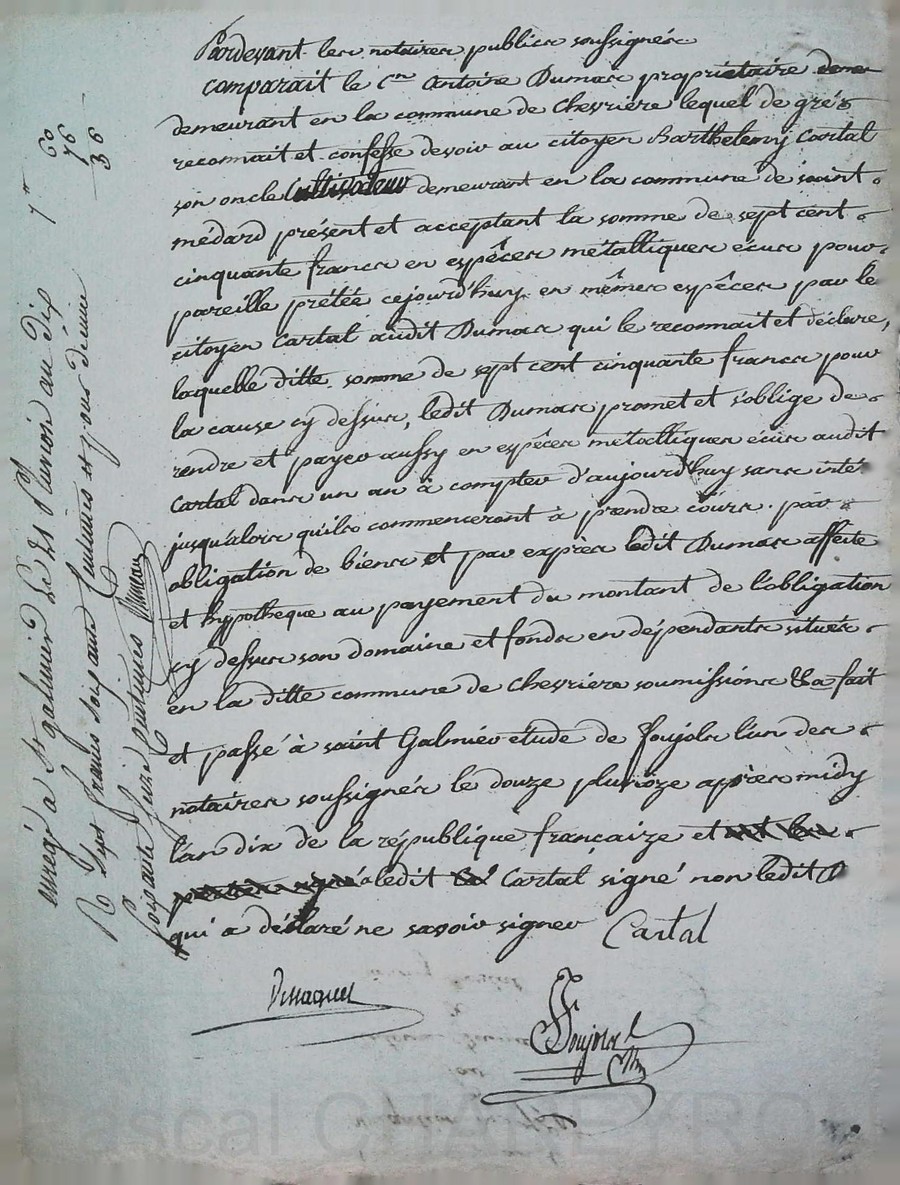 Pardevant les notaires publics soussignés
comparait le Cen Antoine Dumas propriétaire
demeurant en la commune de Chevriere lequel de grés
reconnait et confesse devoir au citoyen Barthelemy Cartal
son oncle Cultivateur demeurant en la commune de saint
médard présent et acceptant la somme de sept cent
cinquante francs en espêces métalliques écus pour
pareille prétée cejourd'huy en mêmes espêces par le
citoyen Cartal audit Dumas qui le reconnait et déclare,
laquelle ditte somme de sept cent cinquante francs pour
la cause cy dessus, ledit Dumas promet et s'oblige de
rendre et payer aussy en espêces métalliques écus audit
Cartal dans un an à compter d'aujourd'huy sans inté
jusqu'alors qu'ils commenceront à prendre cours. par
obligation de biens et par exprès ledit Dumas affecte
et hypotheque au payement du montant de l'obligation
cy dessus son domaine et fonds en dépendants situés
en la ditte commune de Chevriere soumissions &a fait
et passé à saint Galmier étude de Foujols l'un des
notaires soussignés le douze pluvioze après midy
l'an dix de la république françaize et
a ledit Cartal signé non ledit D
qui a déclaré ne savoir signer Cartal
Foujols
enregé a St galmier Le 21 Pluviôse an dix
R sept francs soixante centimes et pour dixième
soixante seize centimes
7 60
76
36
Pascal CHALEYRO